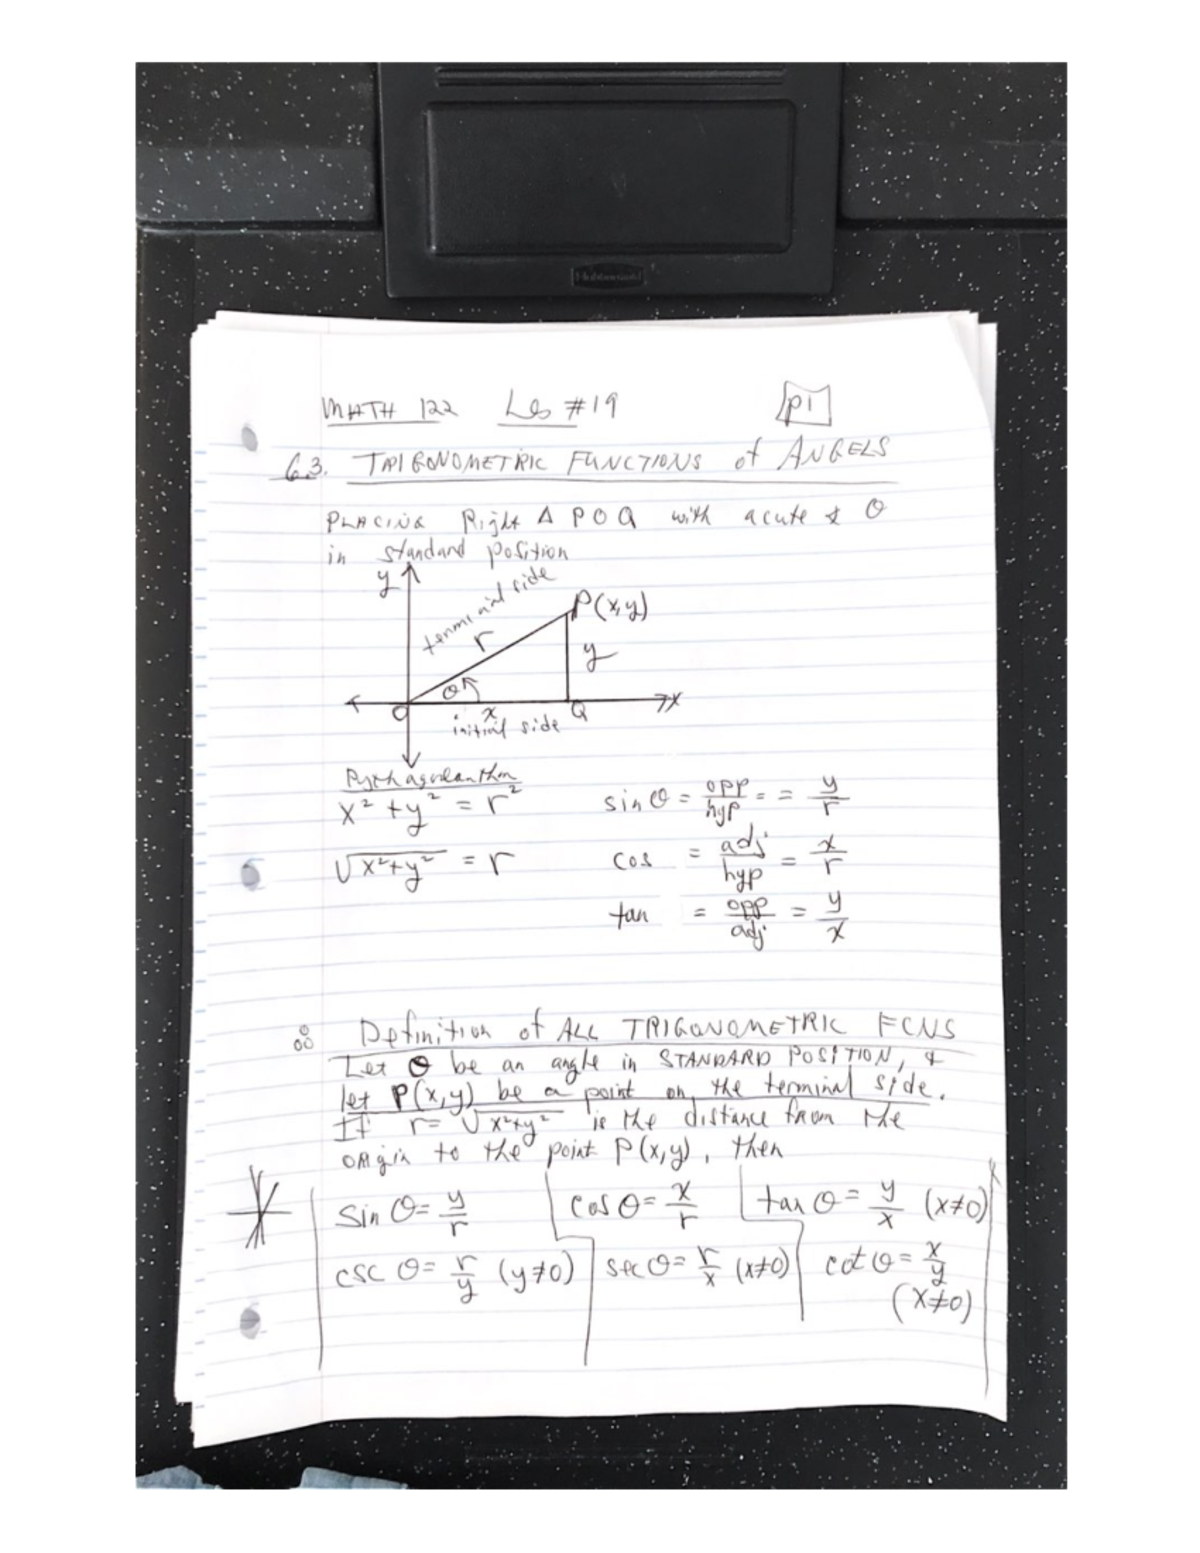 Rubbermaid
MATH 122 Les #19 p1
6.3. TRIGONOMETRIC FUNCTIONS of ANGELS
PLACING Right Δ POQ with acute ∡ θ
in standard position
y
terminal side
P(x,y)
r
y
θ
O x Q x
initial side
Pythagorean thm
x² + y² = r²
√x²+y² = r
sin θ = opp/hyp = = y/r
cos = adj/hyp = x/r
tan = opp/adj = y/x
Definition of ALL TRIGONOMETRIC FCNS
Let θ be an angle in STANDARD POSITION, &
let P(x,y) be a point on the terminal side.
If r = √x²+y² is the distance from the
origin to the point P(x,y), then
sin θ = y/r cos θ = x/r tan θ = y/x (x≠0)
csc θ = r/y (y≠0) sec θ = r/x (x≠0) cot θ = x/y
(x≠0)